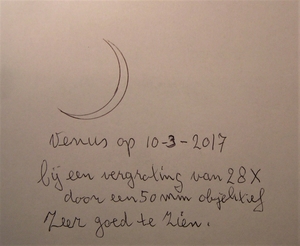 Venus op 10-3-2017
bij een vergroting van 28X
door een 50 mm objektief
Zeer goed te zien.